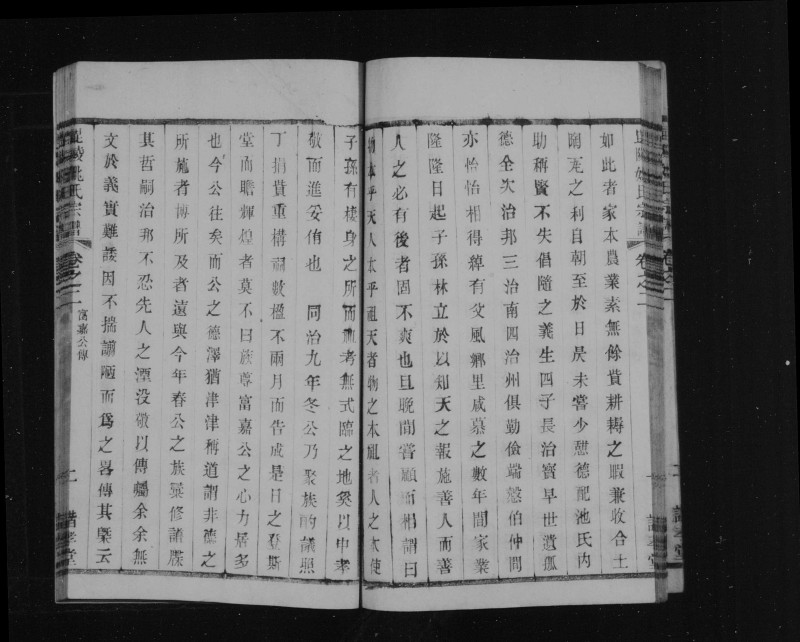 如此者家本農業素無餘貲耕耨之暇兼收合土
陶冶之利自朝至於日昃未嘗少懈德配池氏內
助稱賢不失倡隨之義生四子長治寶早世遺孤
德全次治邦三治南四治州俱勤儉端愨伯仲間
亦怡怡相得綽有父風鄉里咸慕之數年間家業
隆隆日起子孫林立於以知天之報施善人而善
人之必有後者固不爽也且晚間嘗顧而相謂曰
物本乎天人本乎祖天者物之本祖者人之本使
子孫有棲身之所而祖考無式臨之地奚以申孝
敬而進妥侑也 同治九年冬公乃聚族酌議照
丁捐貲重構祠數楹不兩月而告成是日之登斯
堂而瞻輝煌者莫不曰族尊富嘉公之心力居多
也今公往矣而公之德澤猶津津稱道謂非德之
所施者博所及者遠與今年春公之族梁修譜牒
其哲嗣治邦不忍先人之湮没敬以傳囑余余無
文於義實難諉因不揣譾陋而為之畧傳其槩云
毘陵姚氏宗譜 卷之二 富嘉公傳 二